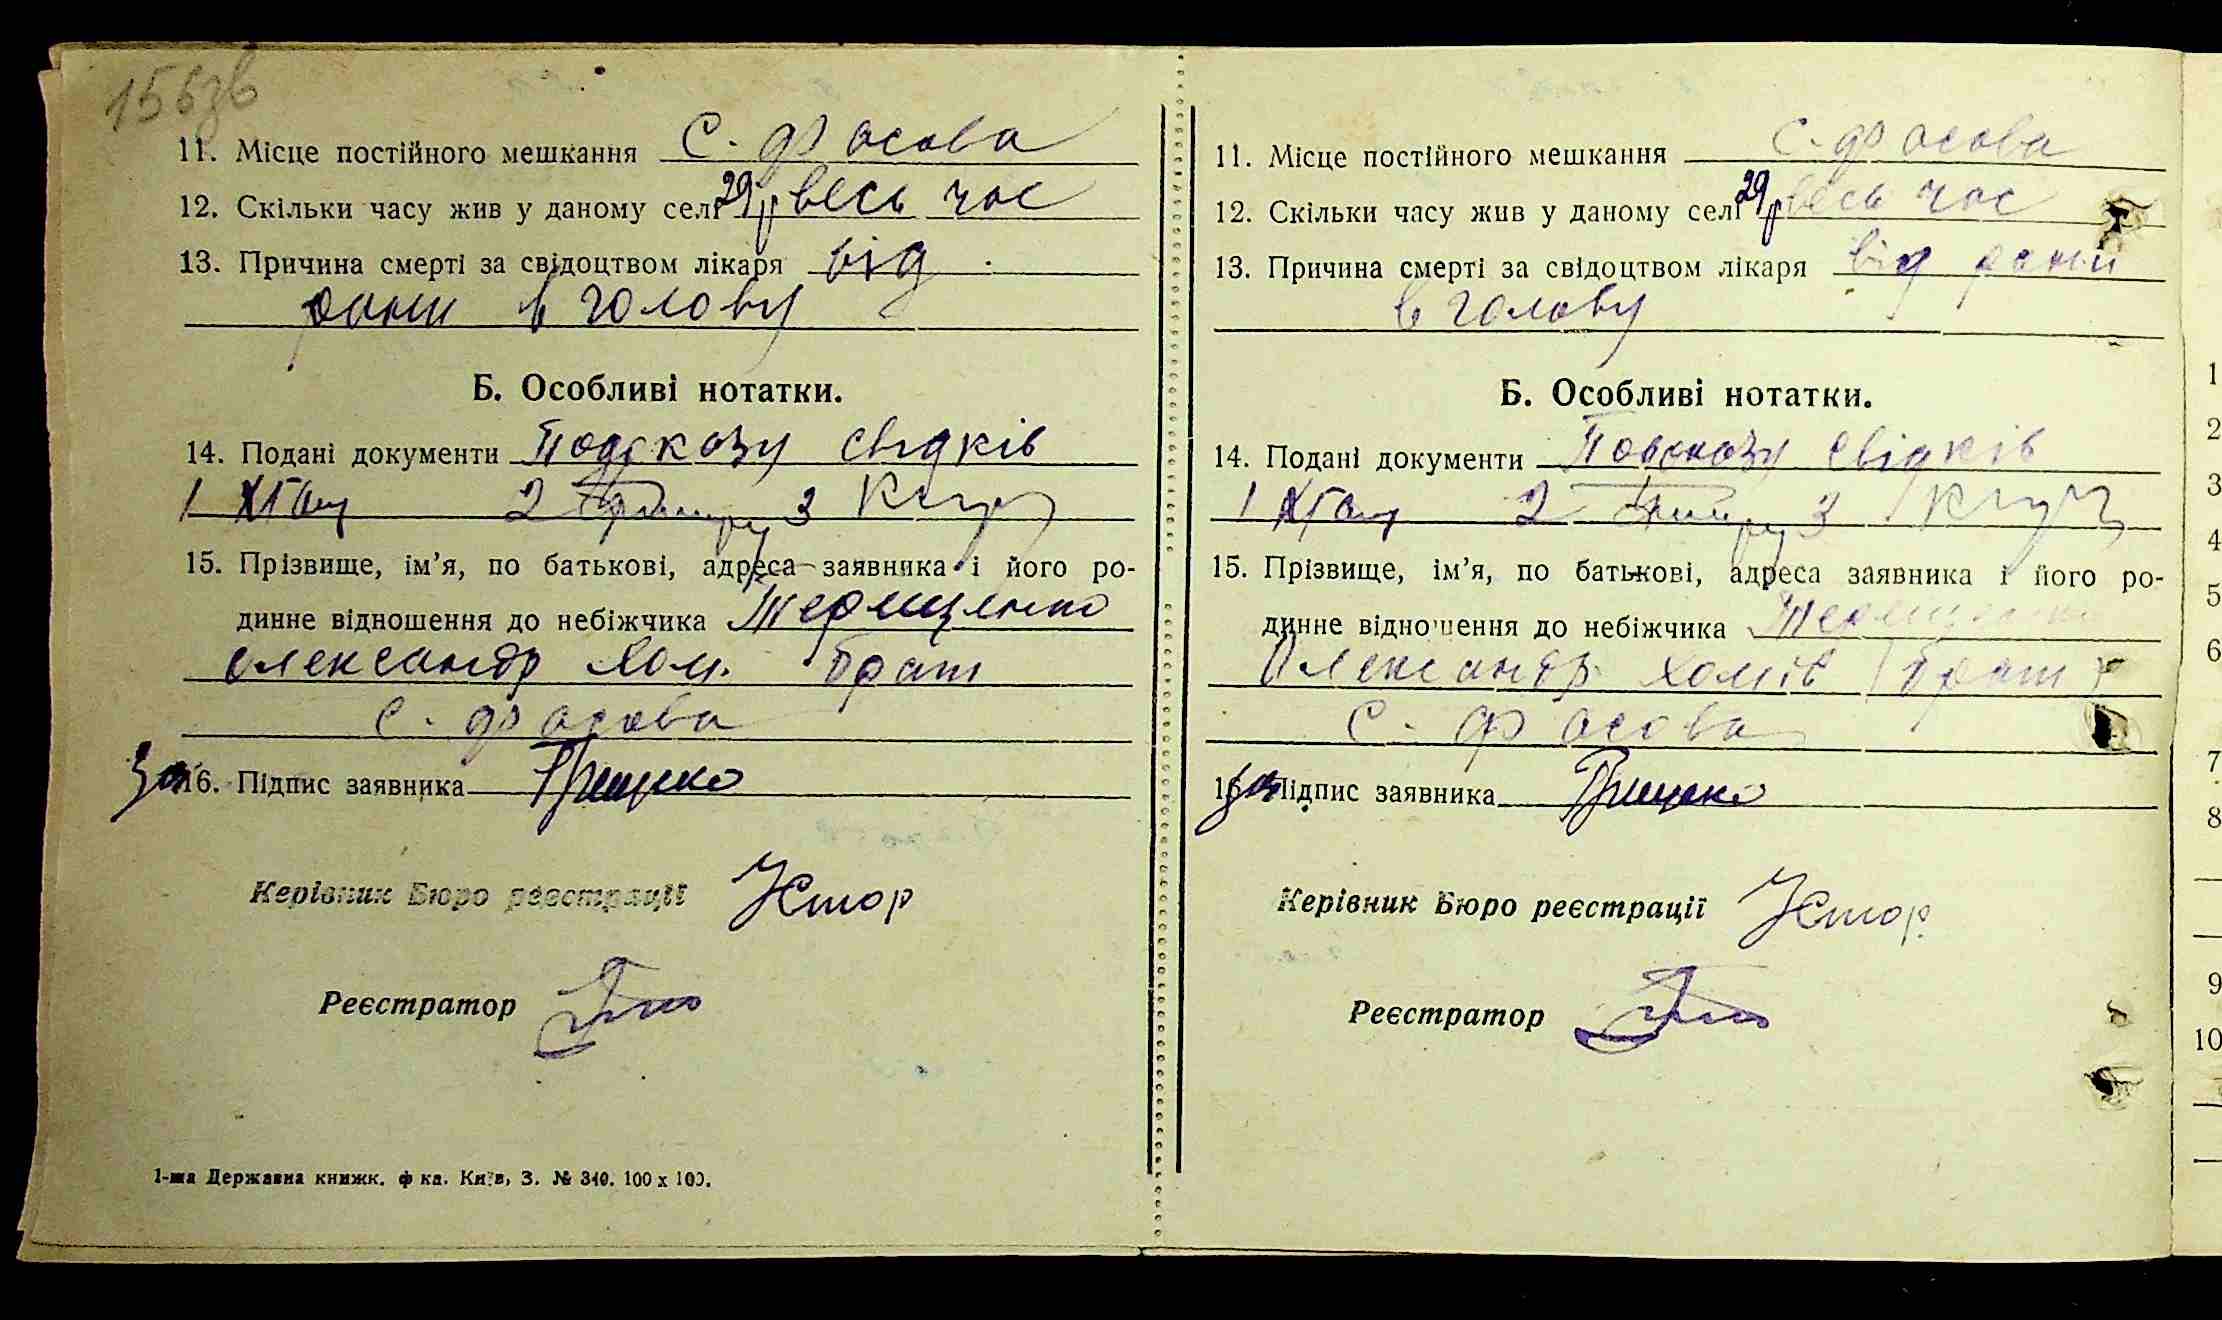 156зв
11. Місце постійного мешкання с. Фасова
12. Скільки часу жив у даному селі 29 р весь час
13. Причина смерті за свідоцтвом лікаря від
рани в голову
Б. Особливі нотатки.
14. Подані документи свідків
1 2 3
15. Прізвище, ім'я, по батькові, адреса заявника і його ро-
динне відношення до небіжчика Терещенко
Олександр Хом. брат
с. Фасова
за 16. Підпис заявника Грищенко
Керівник Бюро реєстрації
Реєстратор
1-ша Державна книжк. ф ка. Київ, З. № 340. 100 х 100.
11. Місце постійного мешкання с. Фасова
12. Скільки часу жив у даному селі 29 р весь час
13. Причина смерті за свідоцтвом лікаря від рани
в голову
Б. Особливі нотатки.
14. Подані документи свідків
1 2 3
15. Прізвище, ім'я, по батькові, адреса заявника і його ро-
динне відношення до небіжчика Терещенко
Олександр Хомів брат
с. Фасова
за 16. Підпис заявника Грищенко
Керівник Бюро реєстрації
Реєстратор
1
2
3
4
5
6
7
8
9
10